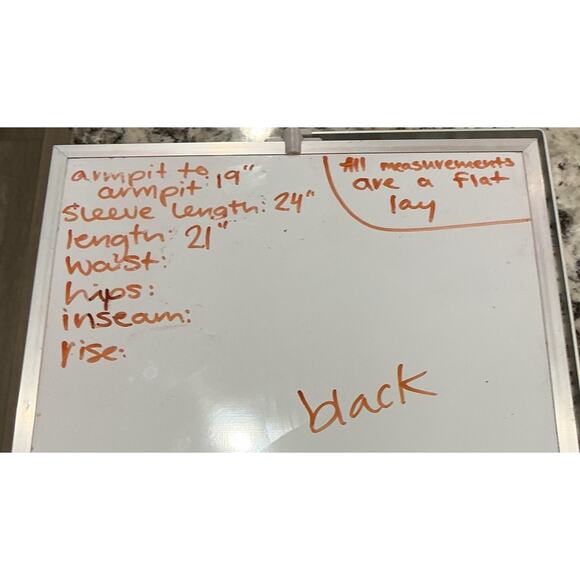 armpit to
armpit: 19"
sleeve length: 24"
length: 21"
waist:
hips:
inseam:
rise:
All measurements
are a flat
lay
black